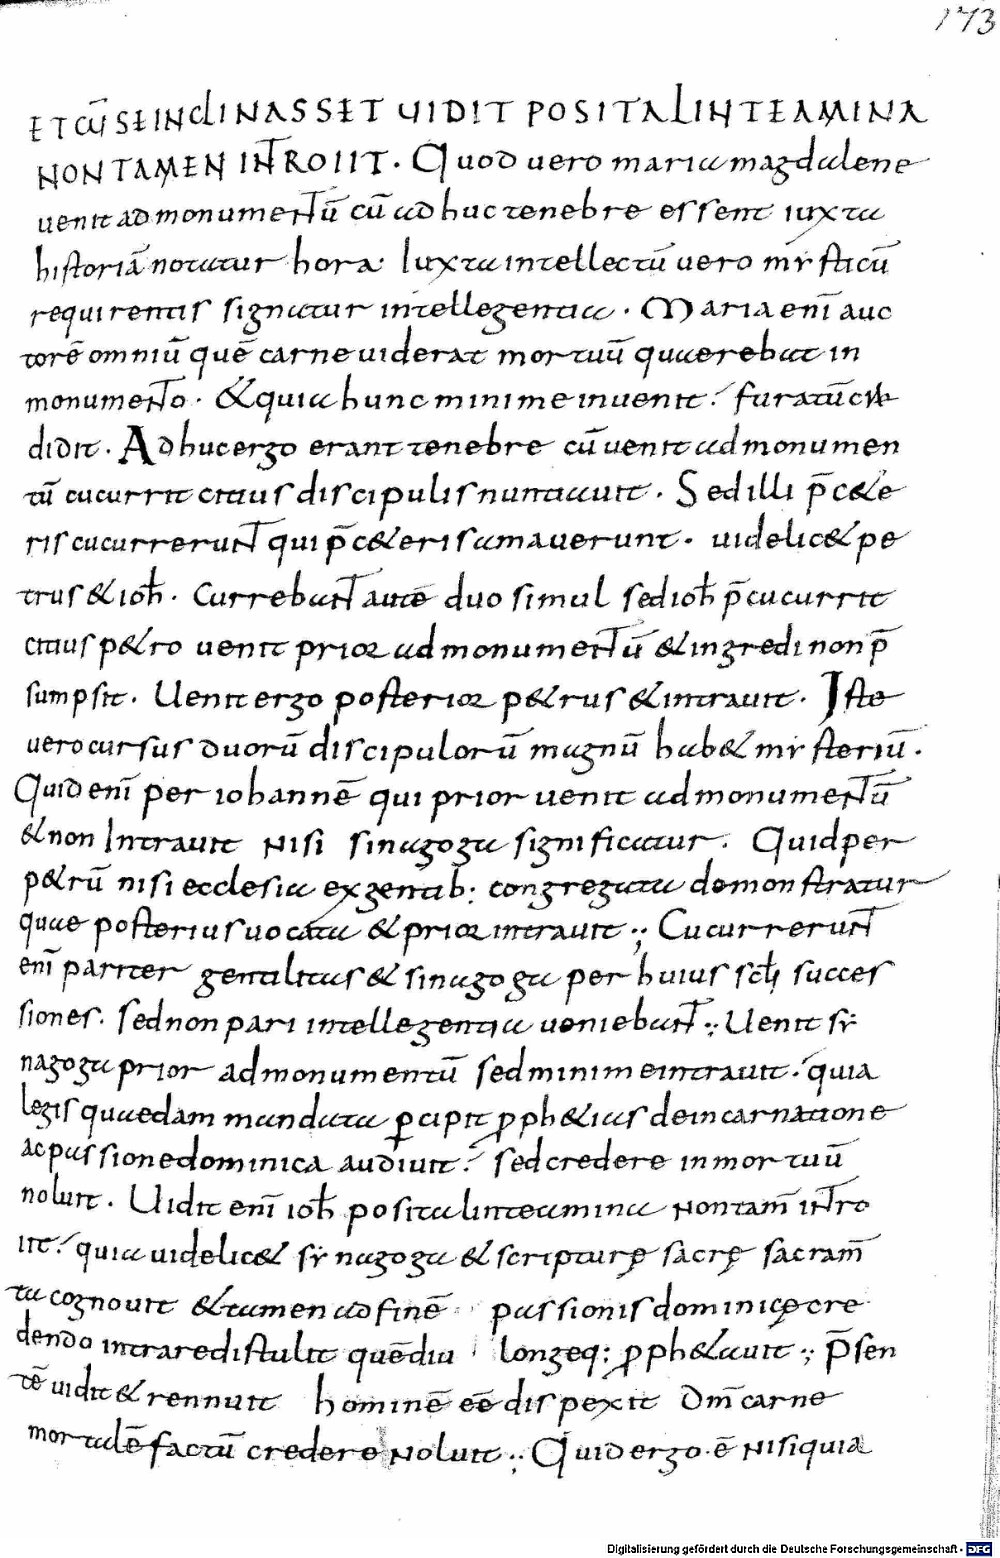 173
ET CŪ SE INCLINASSET UIDIT POSITA LINTEAMINA
NON TAMEN INTROIIT. Quod uero maria magdalene
uenit ad monumentū cū adhuc tenebre essent iuxta
historiā notatur hora. Iuxta intellectū uero mysticū
requirentis signatur intellegentia. Maria enī auc
torē omniū quē carne uiderat mortuū quaerebat in
monumento. & quia hunc minime inuenit. furatū cre
didit. Adhuc ergo erant tenebre cū uenit ad monumen
tū cucurrit citius discipulis nuntiauit. Sed illi p̄ce&e
ris cucurrerunt qui p̄c&eris amauerunt. uidelic& pe
trus & ioh̄. Currebant autē duo simul sed ioh̄ p̄cucurrit
citius p&ro uenit prior ad monumentū & ingredi non p̄
sumpsit. Uenit ergo posterior p&rus & intrauit. Iste
uero cursus duorū discipulorū magnū hab& mysteriū.
Quid enī per iohannē qui prior uenit ad monumentū
& non Intrauit nisi sinagoga significatur. Quid per
p&rū nisi ecclesia ex gentib; congregata demonstratur
quae posterius uocata & prior intrauit; Cucurrerunt
enī pariter gentilitas & sinagoga per huius sc̄li succes
siones. sed non pari intellegentia ueniebant; Uenit sy
nagoga prior ad monumentū sed minime intrauit. quia
legis quaedam mandata ꝑcipit ꝓph&ias de incarnatione
ac passione dominica audiuit. sed credere in mortuū
noluit. Uidit enī ioh̄ posita linteamina non tam̄ intro
iit. quia uidelic& synagoga & scripturę sacrę sacram̄
ta cognouit & tamen ad finē passionis dominicę cre
dendo intrare distulit quē diu longeq; ꝓph&auit; P̄sen
tē uidit & rennuit hominē eē dispexit dm̄ carne
mortalē factū credere noluit; Quid ergo ē nisi quia
Digitalisierung gefördert durch die Deutsche Forschungsgemeinschaft - DFG